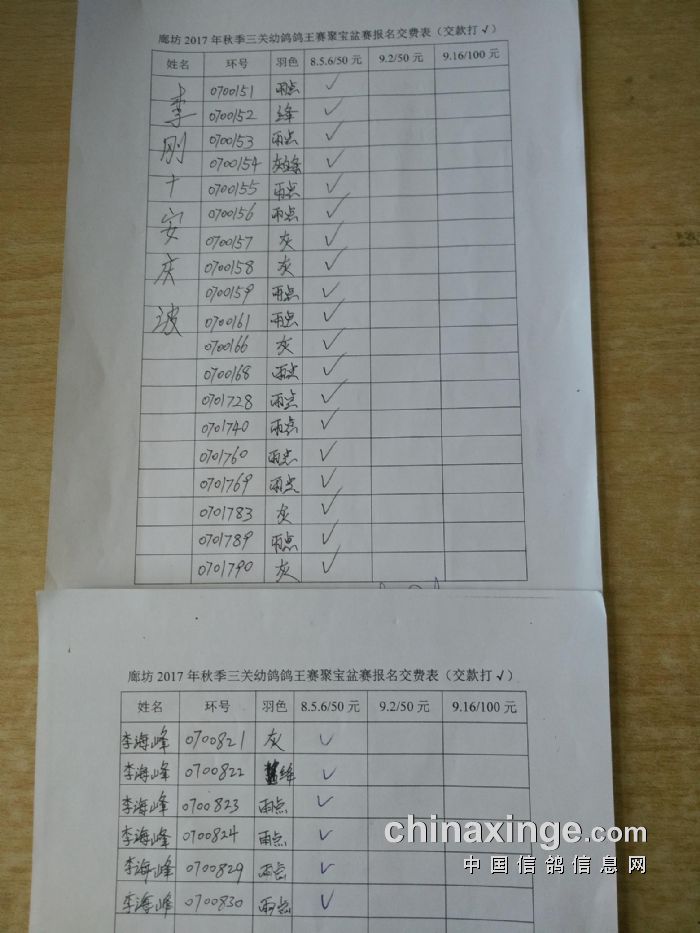 廊坊 2017 年秋季三关幼鸽鸽王赛聚宝盆赛报名交费表（交款打 √）
姓名 环号 羽色 8.5.6/50 元 9.2/50 元 9.16/100 元
李刚十安庆波
0700151 雨点 ✓
0700152 绛 ✓
0700153 雨点 ✓
0700154 灰 ✓
0700155 雨点 ✓
0700156 雨点 ✓
0700157 灰 ✓
0700158 灰 ✓
0700159 雨点 ✓
0700161 雨点 ✓
0700166 灰 ✓
0700168 雨点 ✓
0701728 雨点 ✓
0701740 雨点 ✓
0701760 雨点 ✓
0701769 雨点 ✓
0701783 灰 ✓
0701789 雨点 ✓
0701790 灰 ✓
廊坊 2017 年秋季三关幼鸽鸽王赛聚宝盆赛报名交费表（交款打 √）
姓名 环号 羽色 8.5.6/50 元 9.2/50 元 9.16/100 元
李海峰 0700821 灰 ✓
李海峰 0700822 绛 ✓
李海峰 0700823 雨点 ✓
李海峰 0700824 雨点 ✓
李海峰 0700829 雨点 ✓
李海峰 0700830 雨点 ✓
chinaxinge.com
中国信鸽信息网